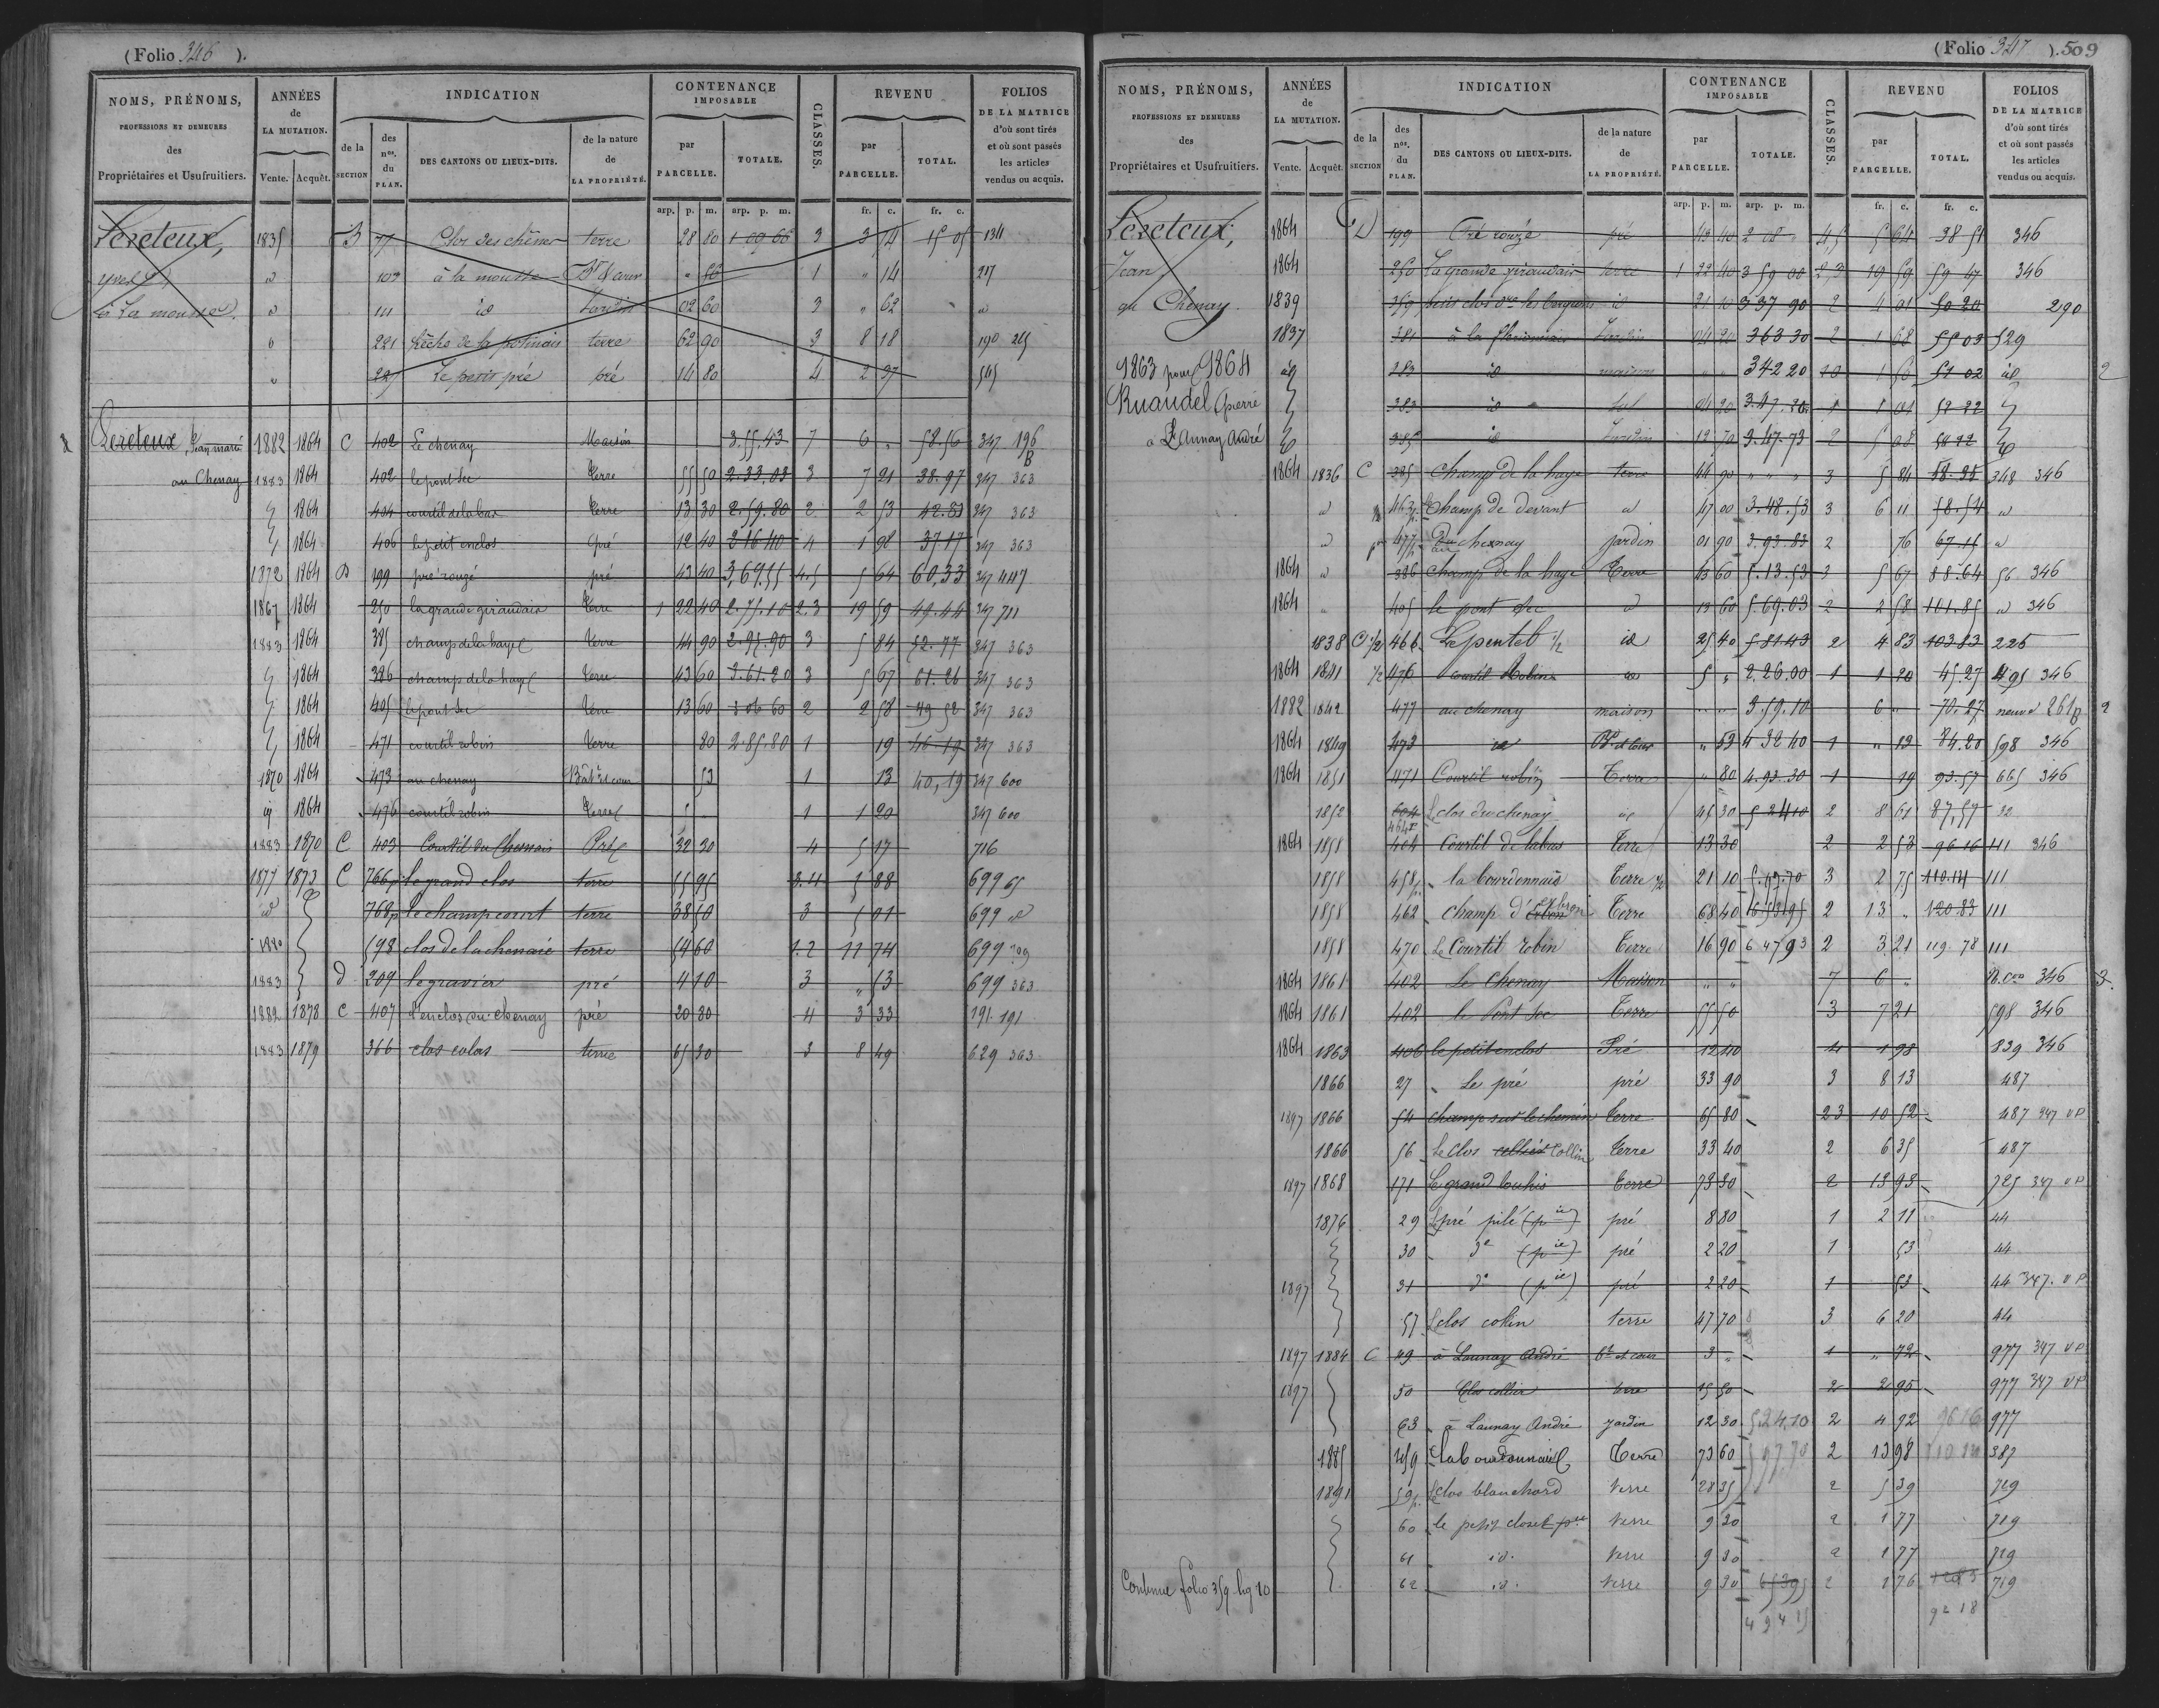 (Folio 346 ).
NOMS, PRÉNOMS, PROFESSIONS ET DEMEURES des Propriétaires et Usufruitiers.
ANNÉES de LA MUTATION. Vente. Acquêt.
INDICATION de la SECTION des nos. du PLAN. DES CANTONS OU LIEUX-DITS. de la nature de LA PROPRIÉTÉ.
CONTENANCE IMPOSABLE par PARCELLE. TOTALE.
CLASSES.
REVENU par PARCELLE. TOTAL.
FOLIOS DE LA MATRICE d'où sont tirés et où sont passés les articles vendus ou acquis.
arp. p. m. arp. p. m. fr. c. fr. c.
Lereteux, 1835 B 77 Clos des chênes terre 28 80 1 09 66 3 3 74 15 05 134
yves id 103 à la mousse Bt & cour " 56 1 " 14 217
à La mousse id 111 id Jardin 02 60 3 " 62 id
221 terre 62 90 3 8 18 190 215
225 Le petit pré pré 14 80 4 2 37 545
Lereteux, Jean marie 1882 1864 C 402 Le chenay Maison 3.55.43 7 6 " 58.56 347 196
au Chenay 1883 1864 402 le pont sec terre 55 50 2.33.03 3 7 21 38.97 347 363
1864 404 courtil de la bas terre 13 30 2.59.80 2 2 53 42.83 347 363
1864 406 le petit enclos pré 12 40 2 16 40 4 1 98 37 17 347 363
1872 1864 D 199 pré rouzé pré 43 40 3,69,55 4.5 5 64 60,33 347 447
1867 1864 250 la grande giraudais terre 1 22 40 2.75.10 2.3 19 59 49.44 347 711
1883 1864 385 champ de la haye terre 44 90 2.95.90 3 5 84 52.77 347 363
1864 386 champ de la haye terre 43 60 3.61.20 3 5 67 61.26 347 363
1864 405 le pont sec terre 13 60 3 06 60 2 2 58 49 52 347 363
1864 471 courtil robin terre 80 2.85.80 1 19 46 19 347 363
1870 1864 473 au chenay Bâtt et cour 53 1 13 40,19 347 600
id 1864 476 courtil robin terre 5 1 1 20 347 600
1883 1870 C 403 Courtil du Chesnais Pré 32 30 4 5 17 716
1877 1873 C 766p le grand clos terre 55 95 3.4 5 88 699 65
id 768p le champ court terre 38 50 3 5 01 699 id
1880 598 clos de la chenaie terre 54 60 1.2 11 74 699
1883 d 209 le gravier pré 4 10 3 " 53 699 363
1882 1878 C 407 L'enclos du chenay pré 20 80 4 3 33 191 191
1883 1879 366 clos colas terre 65 30 3 8 49 629 363
(Folio 347 ). 509
NOMS, PRÉNOMS, PROFESSIONS ET DEMEURES des Propriétaires et Usufruitiers.
ANNÉES de LA MUTATION. Vente. Acquêt.
INDICATION de la SECTION des nos. du PLAN. DES CANTONS OU LIEUX-DITS. de la nature de LA PROPRIÉTÉ.
CONTENANCE IMPOSABLE par PARCELLE. TOTALE.
CLASSES.
REVENU par PARCELLE. TOTAL.
FOLIOS DE LA MATRICE d'où sont tirés et où sont passés les articles vendus ou acquis.
arp. p. m. arp. p. m. fr. c. fr. c.
Lereteux, 1864 D 199 Pré rouzé pré 43 40 2 08 4,5 5 64 38 51 346
Jean 1864 250 La grande giraudais terre 1 22 40 3 59 00 2,3 19 59 59 47 346
au Chenay 1839 359 id 21 10 3 37 90 2 4 01 50 20 290
1837 381 Jardin 04 20 363 30 2 1 68 55 03 529
1863 pour 1864 id 283 id maison " " 342 20 10 51 02 id 2
Ruaudel Pierre 383 id 04 20 3.47.20 1 1 01 52 22
à Launay André 385 id Jardin 12 70 3.47.73 2 5 08 58 22
1864 1836 C 385 Champ de la haye terre 44 90 " " " 3 5 84 58.35 348 346
id 463p Champ de devant id 47 00 3.48.53 3 6 11 58.54 id
id 477p au chesnay jardin 01 90 3.93.83 2 76 67.11 id
1864 id 386 Champ de la haye Terre 43 60 5.13.53 3 5 67 88.64 56 346
1864 " 405 le pont sec id 13 60 5.69.03 2 2 58 101.85 id 346
1838 C 1/2 466 Le pentel 1/2 id 25 40 5 81.43 2 4 83 103.83 225
1864 1841 1/2 476 Courtil Robin id 5 " 2,26.00 1 1 20 45.27 495 346
1882 1842 477 au chenay maison " " 3.59.10 6 " 70.27 neuve 261 2
1864 1849 473 id Bt et cour " 53 4 32 40 1 " 13 84.20 598 346
1864 1851 471 Courtil robin Terre " 80 4.93.30 1 19 93.57 665 346
1852 604 464p Le clos du chenay id 45 30 5 24 10 2 8 61 87,57 32
1864 1858 404 Courtil de la bas Terre 13 30 2 2 53 96 16 111 346
1858 458p la bourdonnais Terre 1/2 21 10 5.97.70 3 2 75 110.14 111
1858 462 champ d' Terre 68 40 6 53 95 2 13 " 120 83 111
1858 470 Le Courtil robin Terre 16 90 6 47 93 2 3 21 119.78 111
1864 1861 402 Le Chenay Maison " " 7 6 " N. con 346 3.
1864 1861 402 le Pont sec Terre 55 50 3 7 21 598 346
1864 1863 406 le petit enclos Pré 12 40 4 1 98 839 346
1866 27 Le pré pré 33 90 3 8 13 487
1897 1866 54 champ sur le chemin terre 65 80 23 10 52 487 347 VP
1866 56 Le clos Collin terre 33 40 2 6 35 487
1897 1868 171 Le grand louhis terre 73 30 2 13 93 725 347 VP
1876 29 Le pré pilé (pie) pré 8 80 1 2 11 44
30 de (pie) pré 2 20 1 53 44
1897 31 do (pie) pré 2 20 1 53 44 347. VP
57 Le clos colin terre 47 70 3 6 20 44
1897 1884 C 49 à Launay André bt et cour 3 " 1 " 72 977 347 VP
1897 50 Clos collin terre 15 50 2 2 95 977 347 VP
63 à Launay André jardin 12 30 524,10 2 4 92 96 16 977
1885 459 la bourdonnais Terre 73 60 597,70 2 13 98 110 14 387
1891 59p Le clos blanchard terre 28 35 2 5 39 719
60 le petit closet pie terre 9 30 2 1 77 719
61 id. terre 9 30 2 1 77 719
Continue folio 359 lig 10 62 id. terre 9 30 653 95 2 1 76 719
92 18